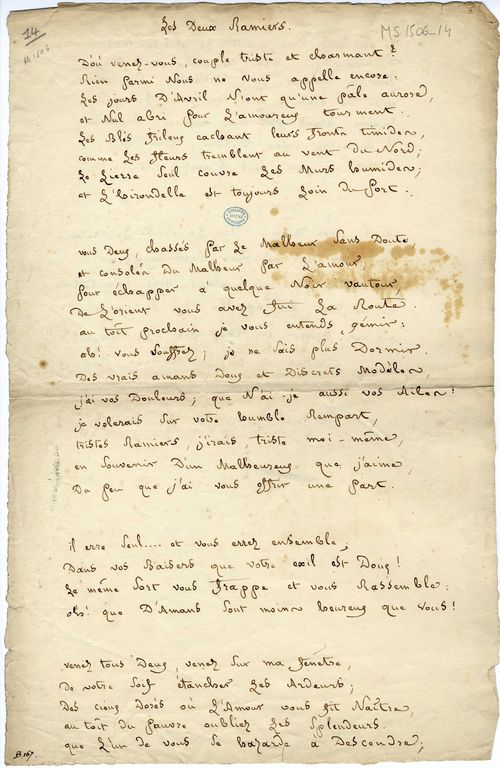 14
Ms 1506
Les Deux Ramiers.
MS 1506-14
D'où venez-vous, couple triste et charmant ?
Rien parmi Nous ne vous appelle encore :
Les jours D'Avril N'ont qu'une pâle aurore,
et Nul abri pour L'amoureux tourment.
Les Blés frileux cachant leurs fronts timides,
comme Les fleurs tremblent au vent du Nord ;
Le Lierre seul couvre Les Murs humides ;
et L'hirondelle est toujours Loin du Port.
vous Deux, chassés par Le Malheur sans Doute
et consolés Du Malheur par L'amour,
pour échapper à quelque Noir vautour,
De L'orient vous avez fui La Route.
au toît prochain je vous entends gémir :
ah ! vous souffrez ; je ne sais plus Dormir.
Des vrais amans Doux et Discrets Modèles
j'ai vos Douleurs ; que N'ai-je aussi vos Ailes !
je volerais sur votre humble Rempart,
tristes Ramiers, j'irais, triste moi-même,
en souvenir D'un Malheureux que j'aime,
Du peu que j'ai vous offrir une part.
il erre seul.... et vous errez ensemble ;
Dans vos Baisers que votre exil est Doux !
Le même sort vous frappe et vous Rassemble :
oh ! que D'Amans sont moins heureux que vous !
venez tous Deux, venez sur ma fenêtre,
De votre soif étancher Les Ardeurs ;
Des cieux Dorés où L'Amour vous fit Naître,
au toît du Pauvre oubliez Les splendeurs.
que L'un de vous se hazarde à Descendre ;
B.167.